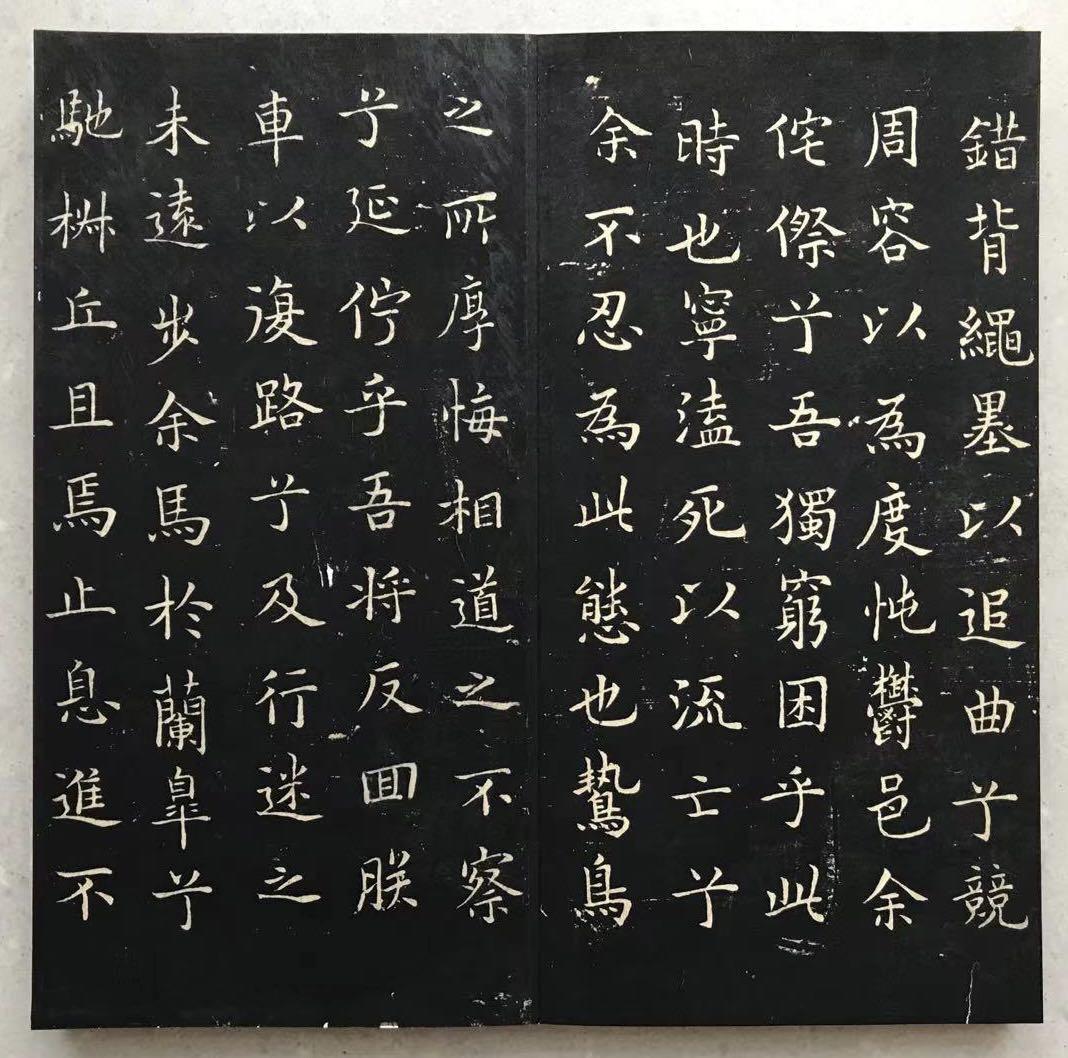 錯背繩墨以追曲兮競
周容以為度忳鬱邑余
侘傺兮吾獨窮困乎此
時也寧溘死以流亡兮
余不忍為此態也鷙鳥
之所厚悔相道之不察
兮延佇乎吾将反囬朕
車以復路兮及行迷之
未遠步余馬於蘭皐兮
馳椒丘且焉止息進不